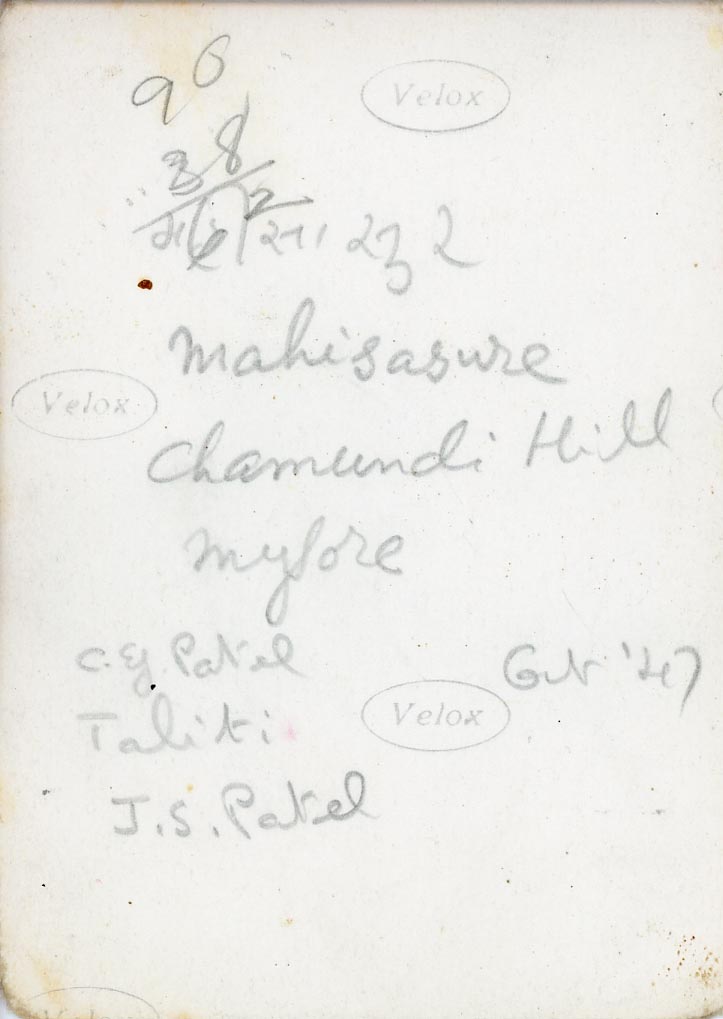 96
Velox
38
2
6
Mahisasure
Velox
Chamundi Hill
Mysore
Patel
Velox
'47
Taliti
J.S. Patel
Velox